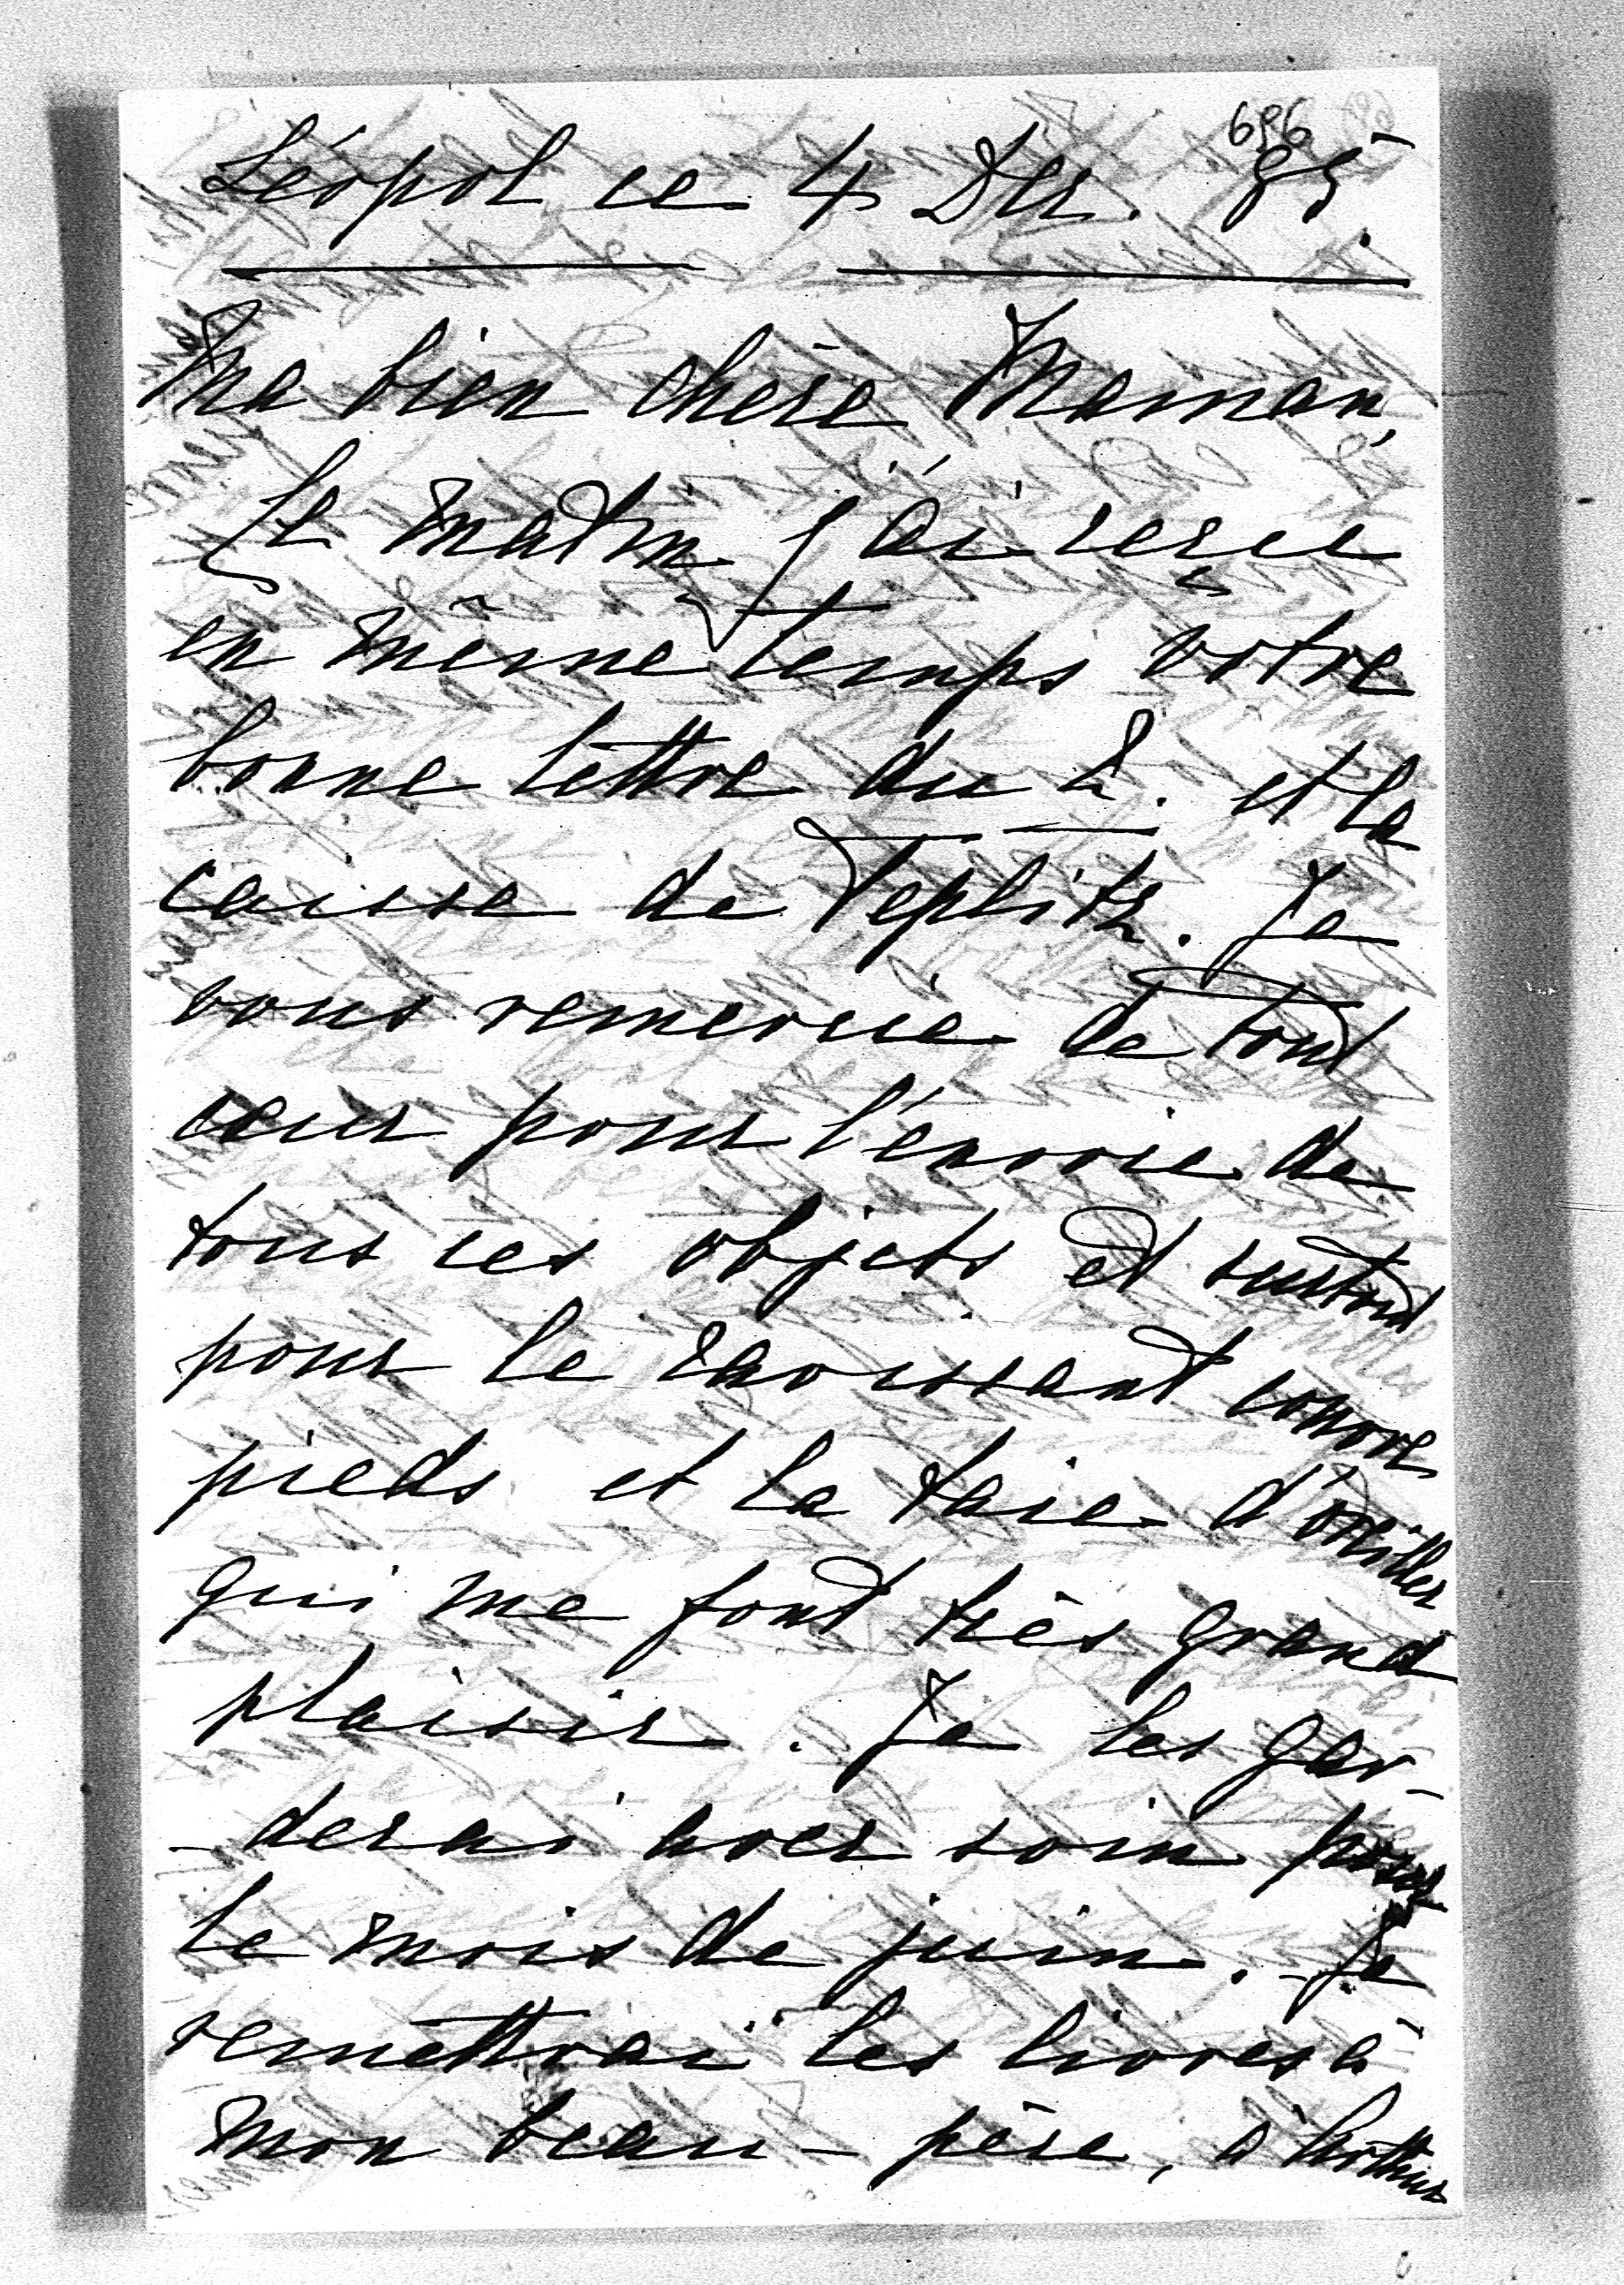 696
Léopol ce 4 Dec. 85.
Ma bien chère Maman,
Ce matin j'ai reçu
en même temps votre
bonne lettre du 2. et la
caisse de Teplitz. Je
vous remercie de tout
cœur pour l'envoie de
tous ces objets et surtout
pour le ravissant couvre
pieds et la taie d'oreiller
qui me font très grand
plaisir. Je les gar-
-derai avec soin pour
le mois de juin. - Je
remettrai les livres à
mon beau-père, à